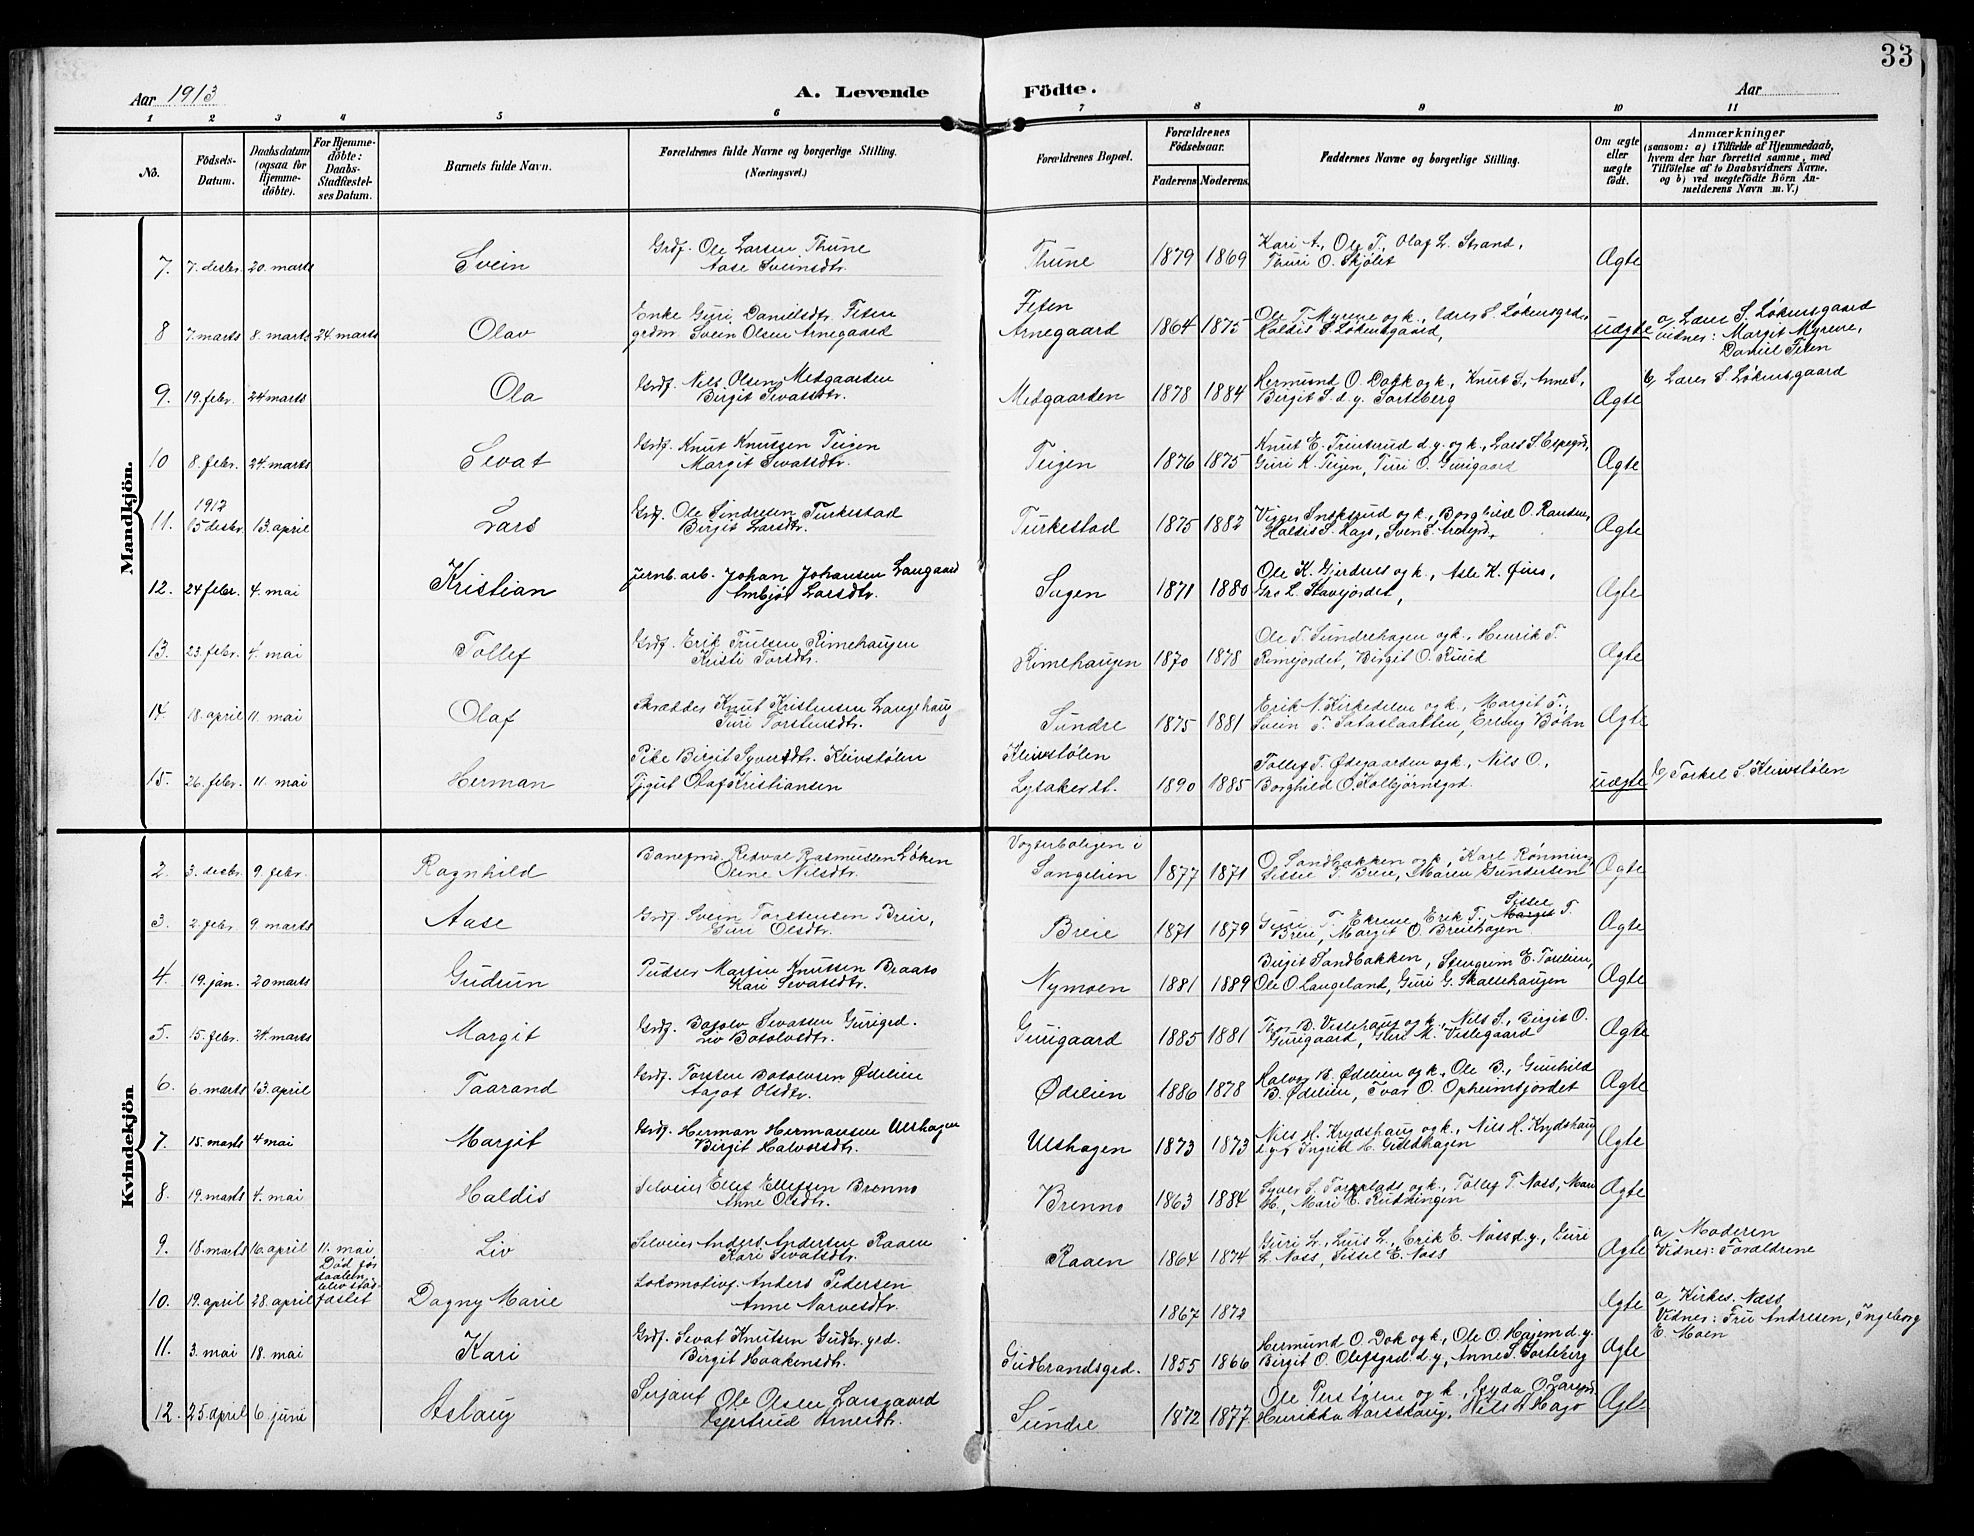 33
Aar 1913
A. Levende
Födte.
Aar
1 2 3 4 5 6 7 8 9 10 11
No.
Födsels-
Datum.
Daabsdatum
(ogsaa for
Hjemme-
döbte).
For Hjemme-
döbte:
Daabs-
Stadfæstel-
ses Datum.
Barnets fulde Navn.
Forældrenes fulde Navne og borgerlige Stilling.
(Næringsvei.)
Forældrenes Bopæl.
Forældrenes
Födselsaar.
Faderens. Moderens.
Faddernes Navne og borgerlige Stilling.
Om ægte
eller
uægte
födt.
Anmærkninger
(saasom: a) i Tilfælde af Hjemmedaab,
hvem der har forrettet samme, med
Tilföielse af to Daabsvidners Navne,
og b) ved uægtefödte Börn An-
melderens Navn m. V.)
Mandkjön.
7. 7. desbr. 20. marts Svein
Grdf. Ole Larsen Thune
Aase Sveinsdtr.
Thune 1879 1869
Kari A., Ole T., Olaf L. Strand,
Thuri O. Skjølet
Ægte
8 7. marts 8. marts 24. marts Olav
Enke Guri Danielsdtr. Feten
grdm Svein Olsen Arnegaard
Feten
Arnegaard 1864 1875
Ole T. Myrene og k., Lars S. Løkensgrd.,
Haldis S. Løkensgaard,
uægte
a, Lars S. Løkensgaard
vidner: Margit Myrene,
Daniel Feten
b, Lars S. Løkensgaard
9. 19. febr. 24 marts Ola
Grdf. Nils Olsen Medgaarden
Birgit Sevatsdtr.
Medgaarden 1878 1884
Hermund O. Dokk og k., Knut S., Anne S.,
Birgit S. d.y. Sorteberg
Ægte
10 8. febr. 24. marts Sevat
Grdf. Knut Knutsen Teigen
Margit Sevatsdtr.
Teigen 1876 1875
Knut E. Trintrud d.y. og k., Lars S. Espegrd,
Guri K. Teigen, Turi O. Gurigaard
Ægte
11. 1912
15 desbr. 13. april Lars
Grdf. Ole Sindresen Turkestad
Birgit Larsdtr.
Turkestad 1875 1882
Ægte
12. 24 febr. 4. mai Kristian
jernb. arb. Johan Johansen Langaard
Embjør Larsdtr.
Sugen 1871 1880
Ole K. Gjerdnes og k., Asle K. Øino,
Gro L. Stavejordet,
Ægte
13. 23. febr. 4. mai Tollef
Grdf. Erik Trulsen Rimehaugen
Kristi Torsdtr.
Rimehaugen 1870 1878
Ole T. Sundrehagen og k., Henrik T.
Rimejordet, Birgit O. Ruud
Ægte
14. 18. april 11. mai Olaf
Skrædder Knut Kristensen Langehaug
Turi Torstensdtr.
Sundre 1875 1881
Erik N. Kirkedelen og k., Margit T.,
Svein T. Sataslaatten, Erling Bøhn
Ægte
15. 26. febr. 11. mai Herman
Pike Birgit Syversdtr. Kleivstølen
Tjgut Olaf Kristiansen
Kleivstølen
Lysaker st. 1890 1885
Tollef T. Ødegaarden og k., Nils O.,
Borghild O. Kolbjørnsgrd.
uægte
b, Torkel S. Kleivstølen
Kvindekjön
2. 3. desbr. 9. febr. Ragnhild
Banefmd. Redval Rasmussen Løken
Oline Nilsdtr.
Vogterboligen i
Sangelien 1877 1871
O. Sandbakken og k., Karl Rønning
Sissel T. Breie, Maren Gundersen
Ægte
3. 2. febr. 9. marts Aase
Grdf. Svein Torstensen Breie,
Guri Olsdtr.
Breie 1871 1879
Sissel
Guri T. Ekrene, Erik T., Margit T.
Breie, Margit O. Breiehagen
Ægte
4. 19. jan. 20 marts Gudrun
Pudser Martin Knutsen Braato
Kari Sevatsdtr.
Nymoen 1881 1889
Birgit Sandbakken, Stengrim E. Torelien,
Ole O. Langeland, Guri G. Skallehaugen
Ægte
5. 15. febr. 24. marts Margit
Grdf. Botolv Sevatsen Gurigrd.
Liv Botolvsdtr.
Gurigaard 1885 1881
Thor B. Veslehaug og k., Nils S., Birgit O.
Gurigaard, Guri M. Veslegaard
Ægte
6. 6. marts 13. april Taarand
Grdf. Torsten Botolvsen Ødelien
Aagot Olsdtr.
Ødelien 1886 1878
Halvor B. Ødelien og k., Ole B., Gunhild
B. Ødelien, Ivar O. Opheimsjordet
Ægte
7. 15. marts 4 mai Margit
Grdf. Herman Hermansen Ulshagen
Birgit Halvorsdtr.
Ulshagen 1873 1873
Nils H. Krydshaug og k., Nils H. Krydshaug
d.y., Ingrid H. Guldhagen
Ægte
8. 19. marts 4. mai Haldis
Selveier Ellef Ellefsen Brenno
Anne Olsdtr.
Brenno 1863 1884
Syver S. Torpplads og k., Tollef T. Nass, Mari
H., Mari E. Rudningen
Ægte
9. 18. marts 16. april 11. mai Liv
Selveier Anders Andersen Raaen
Kari Sevatsdtr.
Raaen 1864 1874
Guri L., Luis L., Erik E. Nass d.y., Guri
L. Nass, Sissel E. Nass
Ægte
a, Moderen
Vidner: Foraldrene
10. 19. april 28. april
Død før
daaben
blev stad-
fæstet
Dagny Marie
Lokomotivf. Anders Pedersen
Anne Narvesdtr.
1867 1872
Ægte
a, Kirkes. Næss
Vidner: Fru Andresen, Ingeborg
E. Moen
11. 3. mai 18. mai Kari
Grdf. Sevat Knutsen Gudbr.grd.
Birgit Haakensdtr.
Gudbrandsgrd. 1855 1866
Hermund O. Dok og k., Ole O. Hajem d.y.
Birgit O. Olefsgrd. d.y., Anne S. Sorteberg
Ægte
12. 25. april 6. juni Aslaug
Serjant Ole Olsen Larsgaard
Gjertrud Arnesdtr.
Sundre 1872 1877.
Ole Perstølen og k., Gyda O. Larsgrd.
Henrikka Harsshaug, Nils L. Hago
Ægte